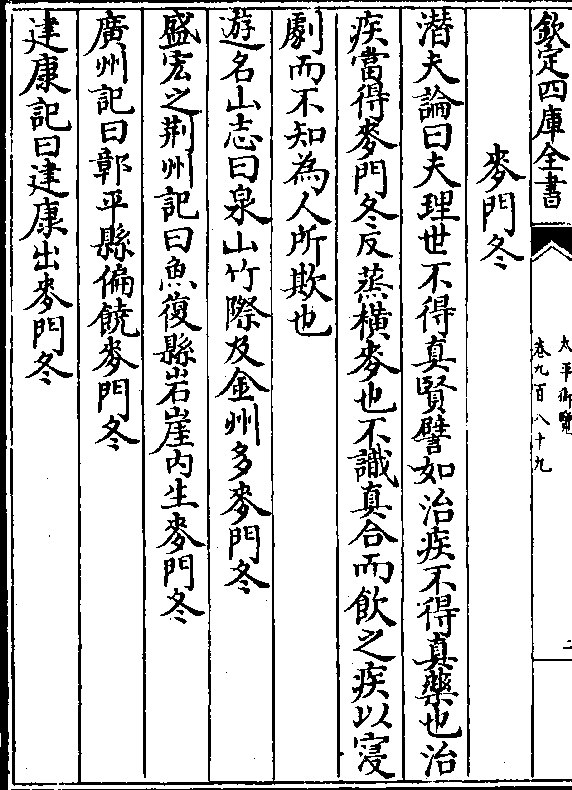 欽定四庫全書
太平御覽
卷九百八十九
二
麥門冬
潛夫論曰夫理世不得真賢譬如治疾不得真藥也治
疾當得麥門冬反蒸橫麥也不識真合而飲之疾以寖
劇而不知為人所欺也
遊名山志曰泉山竹際及金州多麥門冬
盛宏之荆州記曰魚復縣岩崖内生麥門冬
廣州記曰鄣平縣偏饒麥門冬
建康記曰建康出麥門冬